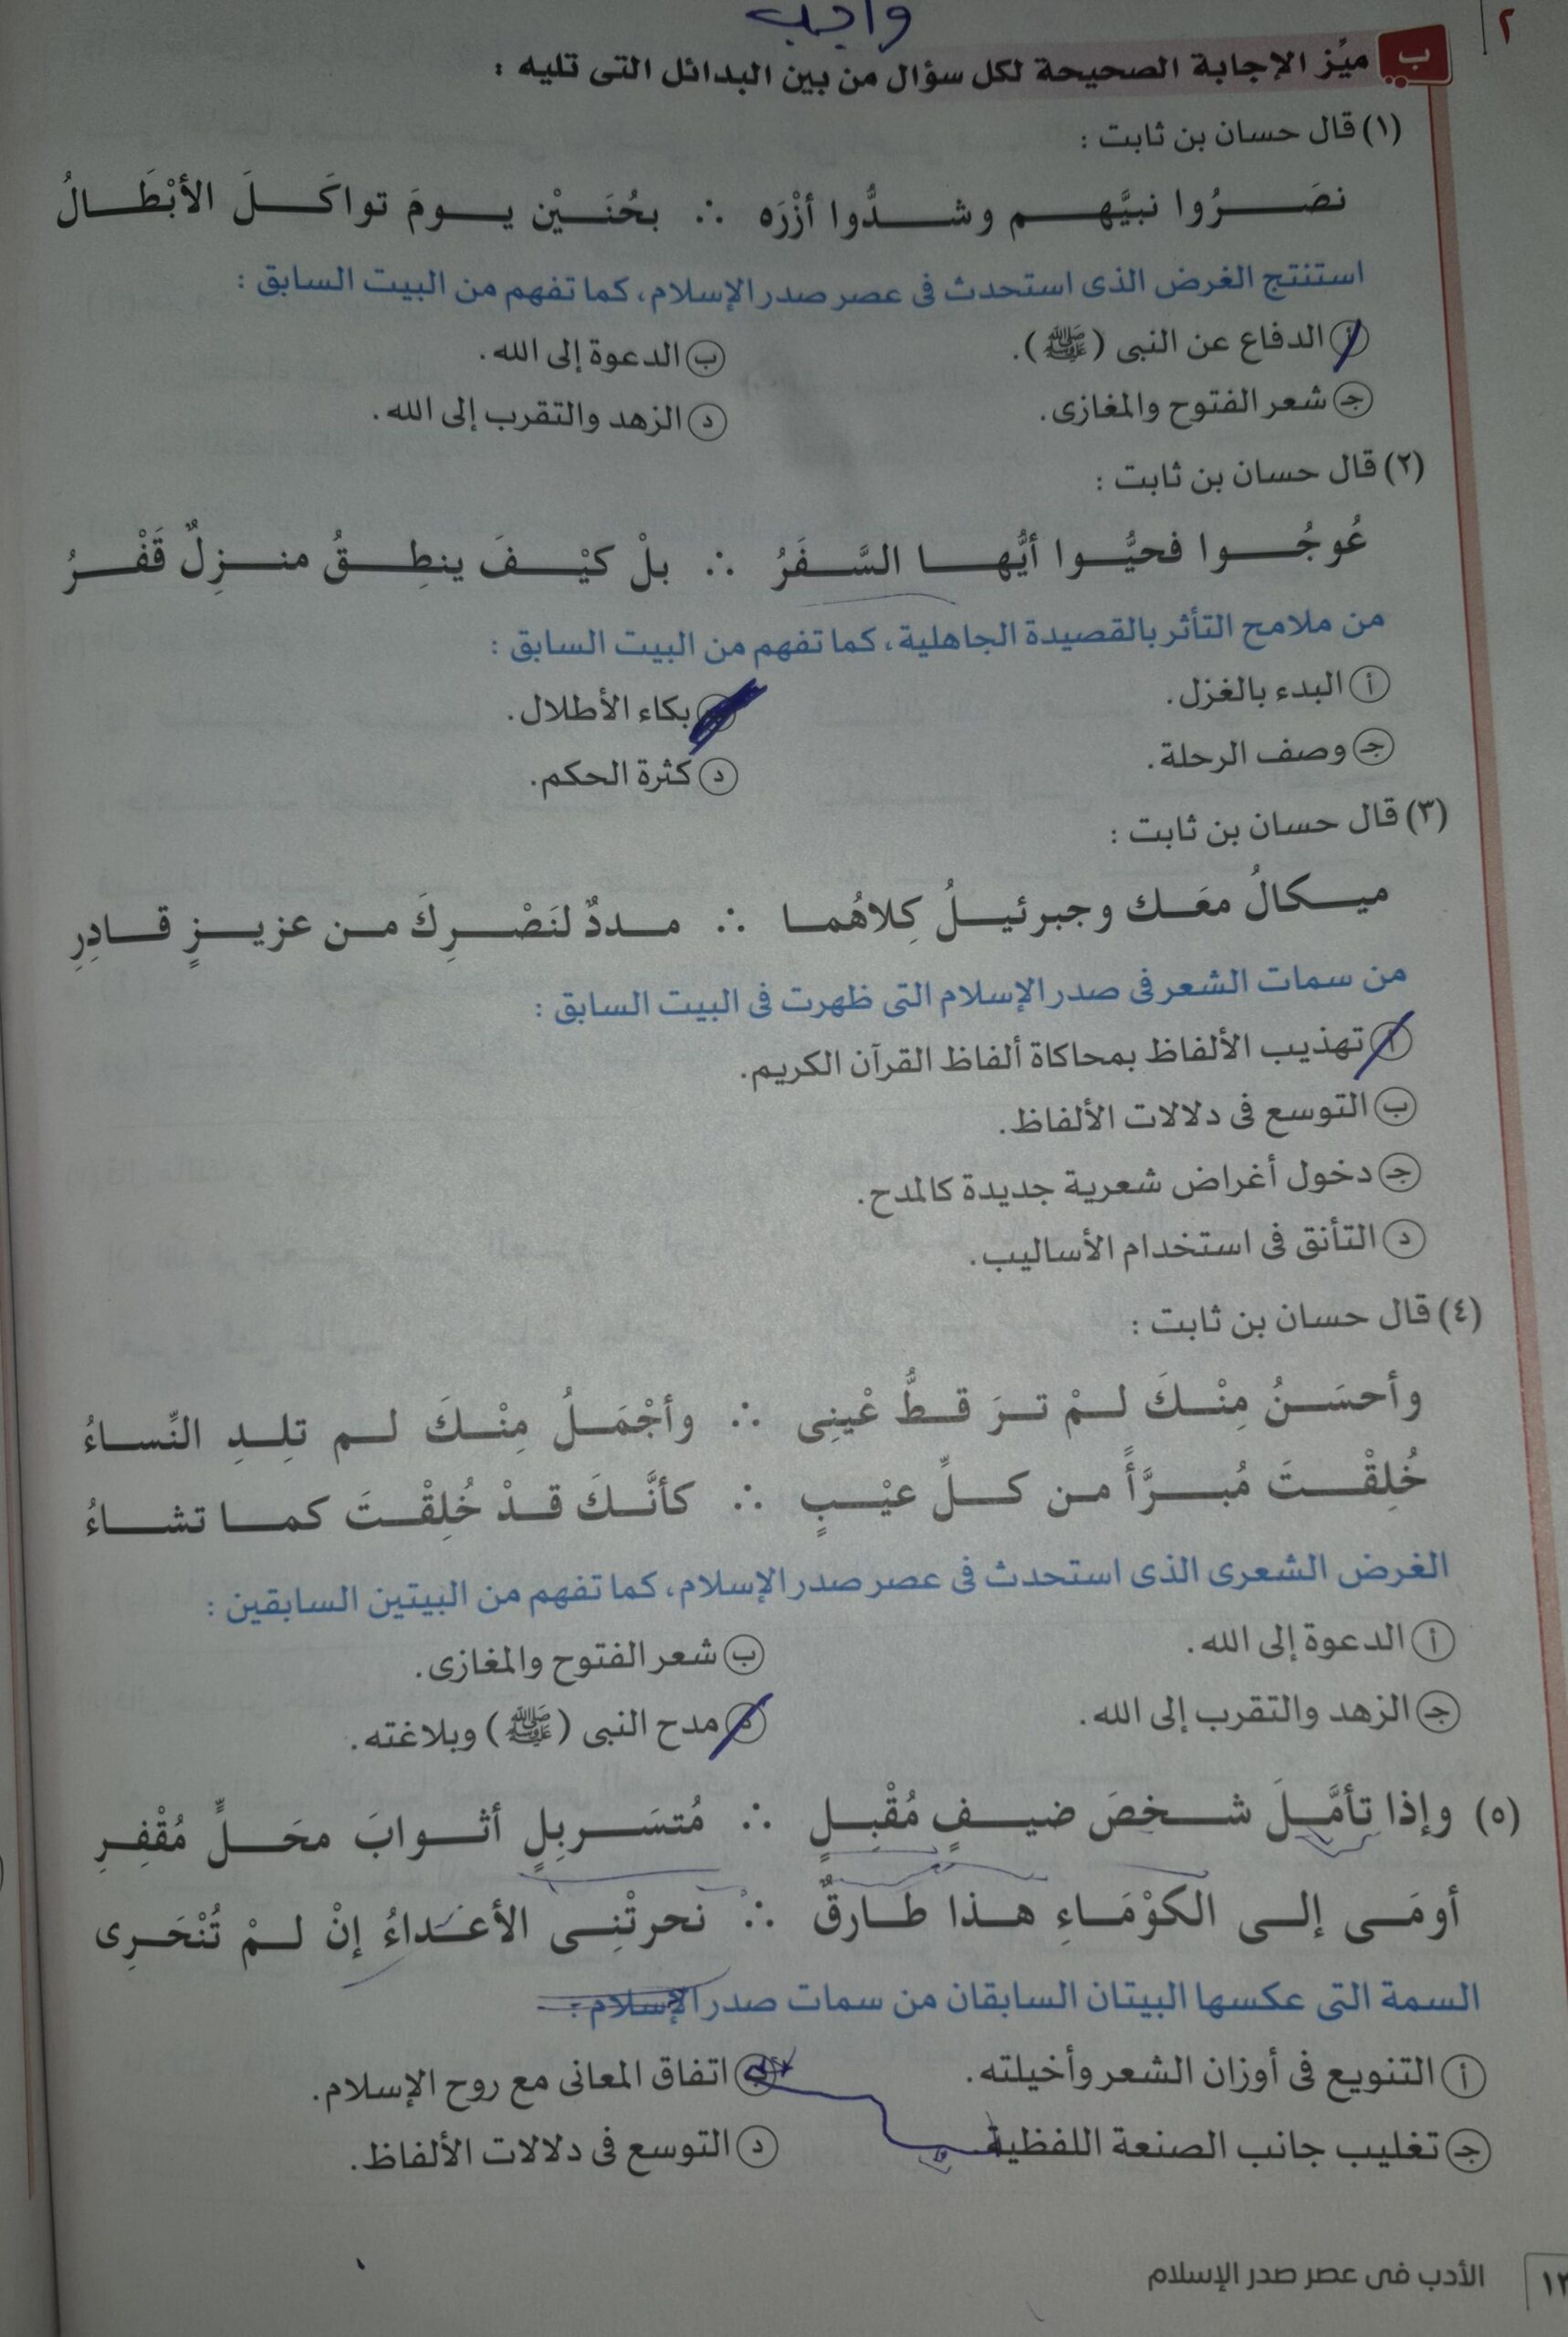 واجب
٢
ب ميِّز الإجابة الصحيحة لكل سؤال من بين البدائل التى تليه :
(١) قال حسان بن ثابت :
نصَرُوا نبيَّهم وشدُّوا أزْرَه ∴ بحُنَيْن يومَ تواكَلَ الأبْطَالُ
استنتج الغرض الذى استحدث فى عصر صدر الإسلام، كما تفهم من البيت السابق :
أ الدفاع عن النبى (ﷺ). ب الدعوة إلى الله.
جـ شعر الفتوح والمغازى. د الزهد والتقرب إلى الله.
(٢) قال حسان بن ثابت :
عُوجُوا فحيُّوا أيُّها السَّفَرُ ∴ بلْ كيْفَ ينطِقُ منزِلٌ قَفْرُ
من ملامح التأثر بالقصيدة الجاهلية، كما تفهم من البيت السابق :
أ البدء بالغزل. بكاء الأطلال.
جـ وصف الرحلة. د كثرة الحكم.
(٣) قال حسان بن ثابت :
ميكالُ معَك وجبرئيلُ كِلاهُما ∴ مددٌ لنَصْرِكَ من عزيزٍ قادِرِ
من سمات الشعر فى صدر الإسلام التى ظهرت فى البيت السابق :
أ تهذيب الألفاظ بمحاكاة ألفاظ القرآن الكريم.
ب التوسع فى دلالات الألفاظ.
جـ دخول أغراض شعرية جديدة كالمدح.
د التأنق فى استخدام الأساليب.
(٤) قال حسان بن ثابت :
وأحسَنُ مِنْكَ لمْ ترَ قطُّ عْينِى ∴ وأجْمَلُ مِنْكَ لم تلِدِ النِّساءُ
خُلِقْتَ مُبرَّأً من كلِّ عيْبٍ ∴ كأنَّكَ قدْ خُلِقْتَ كما تشاءُ
الغرض الشعرى الذى استحدث فى عصر صدر الإسلام، كما تفهم من البيتين السابقين :
أ الدعوة إلى الله. ب شعر الفتوح والمغازى.
جـ الزهد والتقرب إلى الله. د مدح النبى (ﷺ) وبلاغته.
(٥) وإذا تأمَّلَ شخصَ ضيفٍ مُقْبلٍ ∴ مُتسَربِلٍ أثوابَ محَلٍّ مُقْفِرِ
أومَى إلى الكوْمَاءِ هذا طارقٌ ∴ نحرتْنِى الأعداءُ إنْ لمْ تُنْحَرِى
السمة التى عكسها البيتان السابقان من سمات صدر الإسلام :
أ التنويع فى أوزان الشعر وأخيلته. ب اتفاق المعانى مع روح الإسلام.
جـ تغليب جانب الصنعة اللفظية. د التوسع فى دلالات الألفاظ.
الأدب فى عصر صدر الإسلام